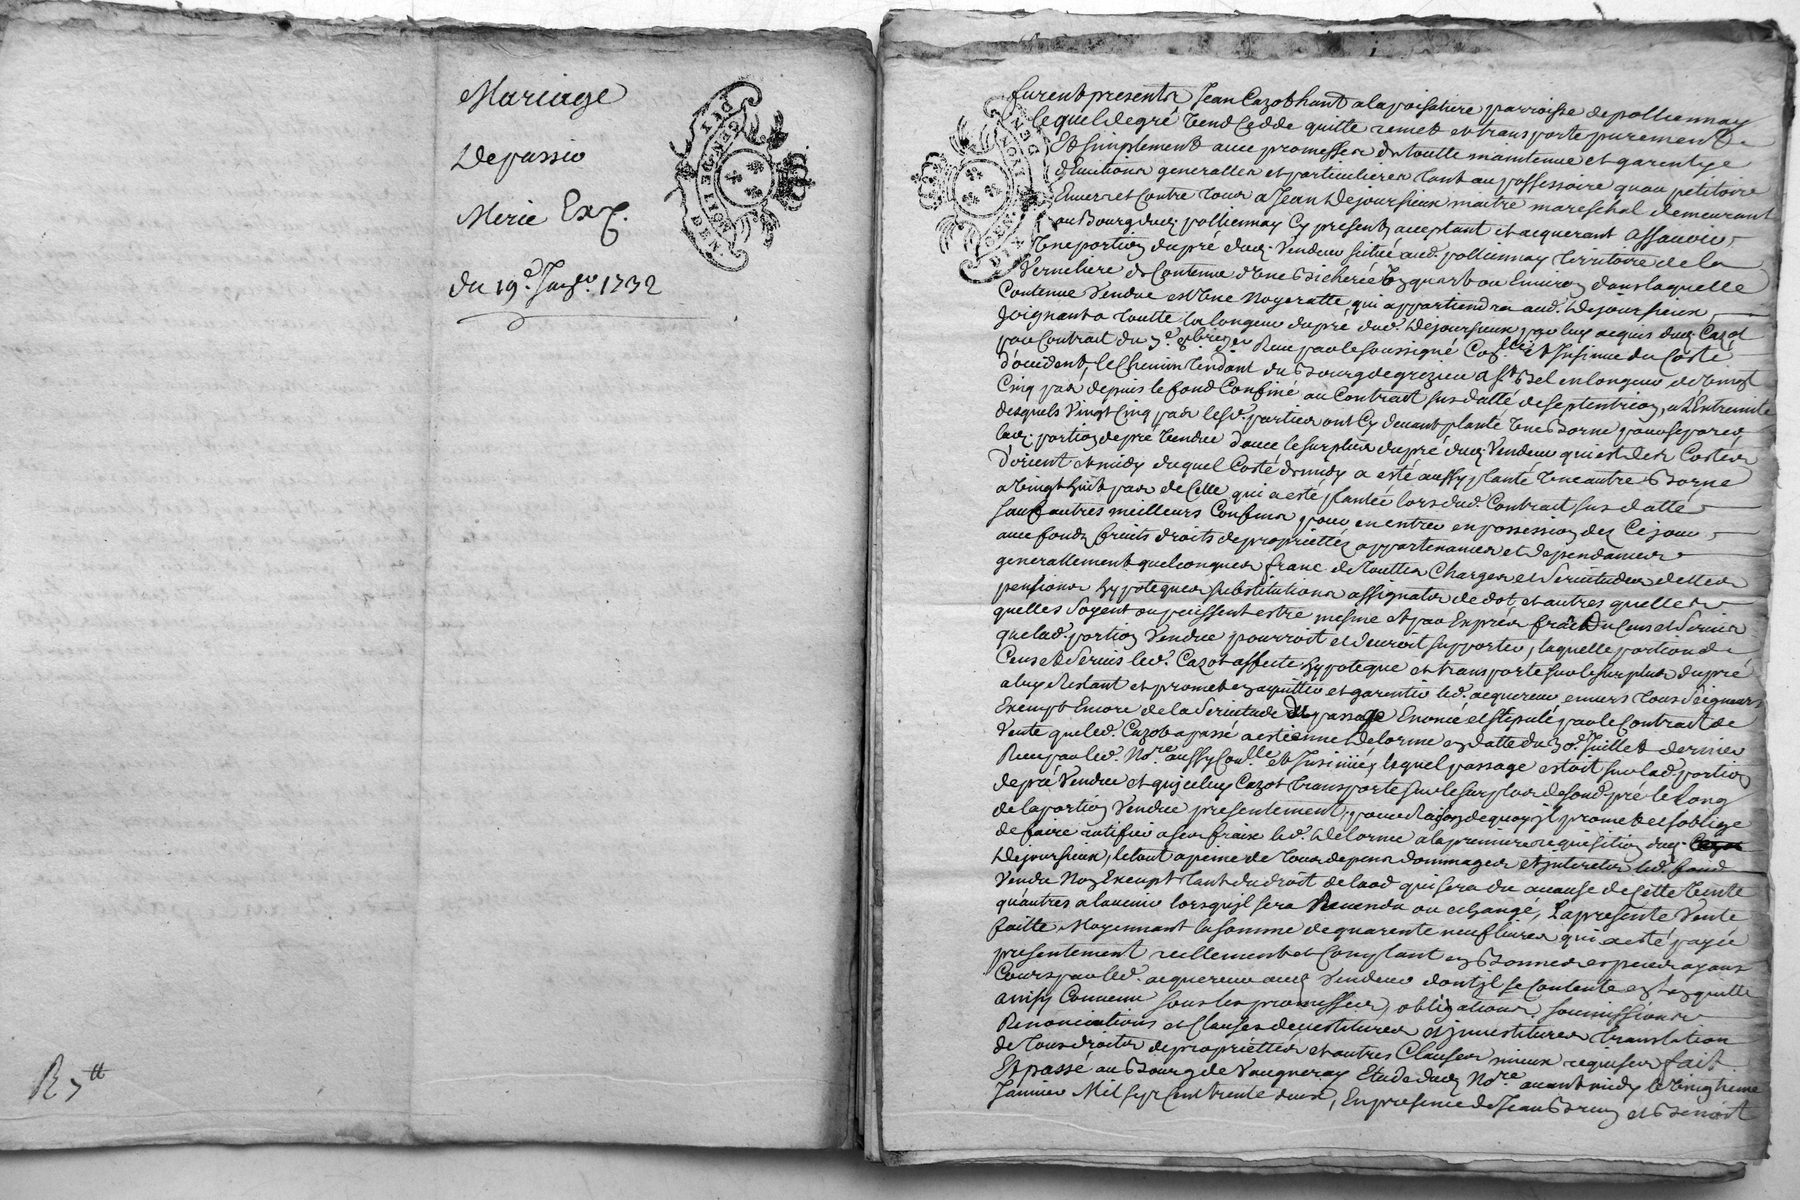 Mariage
Depassio
Merie Exp.
du 19e Janvr. 1732
R 5tt
GENER DE LYON
furent presents Jean Cazot habitt a la poisatiere parroisse de pollionnay
lequel de gré vend cedde quitte remet et transporte purement
et simplement avec promesses de toutte maintenue et garentye
d'Evictions generalles et particulieres tant au possessoire qu'au petitoire
Envers et Contre tous a Jean Dejoursieux maitre mareschal demeurant
au Bourg dud. pollionnay Cy present, acceptant et acquerant assavoir
Une portion du pré dud. Vendeur scitué aud. pollionnay territoire de la
Verneliere de Contenue d'Une Bicherée Un quart ou Environ dans laquelle
Contenue Vendue est Une Noyeratte, qui appartiendra aud. Dejoursieux,
joignant a toutte la longeur du pré dud. Dejoursieux par luy acquis dud. Cazot
par Contrat du Reçu par le soussigné et Insinué du Costé
d'occident, le Chemin tendant du Bourg de grezieu a St. Bel en longeur de Vingt
Cinq pas depuis le fond Confiné au Contract sus datté de septentrion, a l'Extremité
desquels Vingt Cinq pas lesd. parties ont Cy devant planté Une Borne pour separer
lad. portion de pré Vendue d'avec le surplus du pré dud. Vendeur qui est des Costés
D'orient et midy duquel Costé de midy a esté aussy planté Une autre Borne
a Vingt huit pas de Celle qui a esté plantée lors dud. Contract sus datté
sauf autres meilleurs Confins pour en entrer en possession dez Ce jour
avec fonds fruits droits de proprietté, appartenances et dependances
generallement quelconques franc de touttes Charges et Servitudes dettes
pensions hypoteques substitutions assignator de dot, et autres quelles
quelles soyent ou puissent estre mesme et par Exprés frais du Cens et Servis
que lad. portion Vendue pourroit et devroit supporter, laquelle portion de
Cens et Servis led. Cazot affecte hypoteque et transporte sur le surplus du pré
a luy Restant et promet en acquitter et garentir led. acquereur envers tous Seigneurs
Exempt Encore de la Servitude du passage Enoncé et stipulé par le Contract de
Vente que led. Cazot a passé a estienne Delorme en datte du 30e. Juillet dernier
Reçu par led. Nore. aussy Conllé. et Insinué, lequel passage estoit sur lad. portion
de pré Vendue et qu'jceluy Cazot transporte sur le surplus de sond. pré le Long
de la portion Vendue presentement, pour Raison de quoy jl promet et s'oblige
de faire ratifier a ses fraix led. Delorme a la premiere requisition dud.
Dejoursieux, le tout a peine de tous depens dommages et jnterets, led. fond
Vendu Non Exempt tant du droit de laod qui sera du a cause de Cette Vente
qu'autres a l'avenir lorsqu'jl sera Revendu ou echangé, La presente Vente
faitte Moyennant la somme de quarente neuf livres qui a esté payée
presentement reellement et Comptant en Bonnes especes ayant
Cours par led. acquereur aud. Vendeur dont jl se Contente et l'en quitte
ainsy Convenu sous les promesses, obligations soumissions
Renonciations et Clauses devestitures et jnvestitures translation
de tous droits de proprietté et autres Clauses mieux requises fait
Et passé au Bourg de Vaugneray Etude dud. Nore. avant midy le Vingtieme
Janvier Mil sept Cent trente deux, En presence de Jean Brun et Benoit